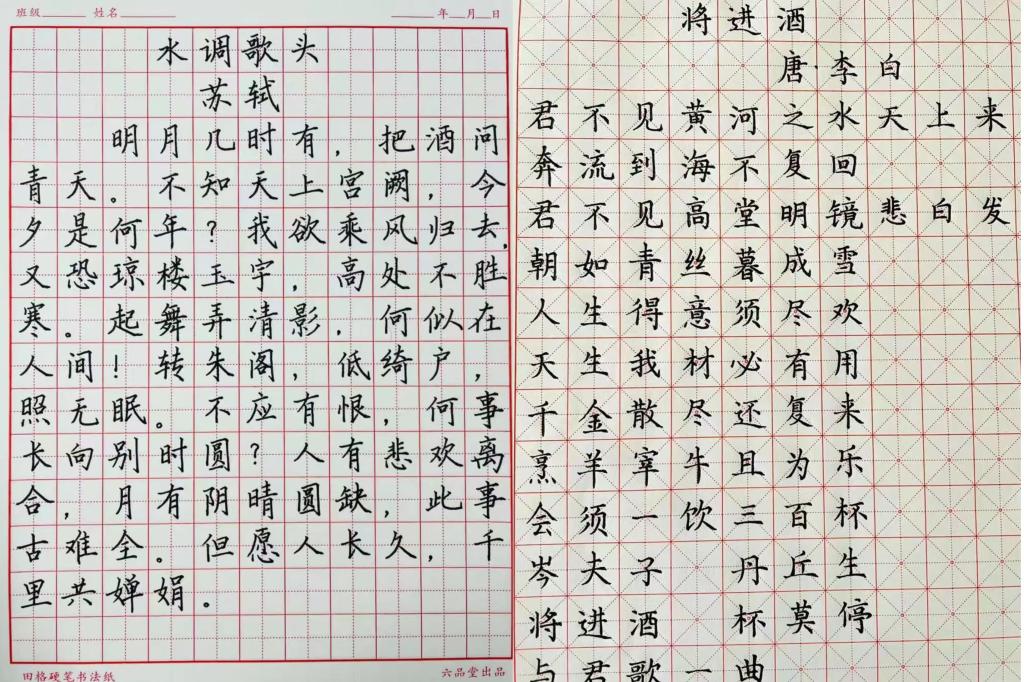 班级 姓名 年 月 日
水调歌头
苏轼
明月几时有，把酒问
青天。不知天上宫阙，今
夕是何年？我欲乘风归去，
又恐琼楼玉宇，高处不胜
寒。起舞弄清影，何似在
人间！转朱阁，低绮户，
照无眠。不应有恨，何事
长向别时圆？人有悲欢离
合，月有阴晴圆缺，此事
古难全。但愿人长久，千
里共婵娟。
田格硬笔书法纸 六品堂出品
将进酒
唐·李白
君不见黄河之水天上来
奔流到海不复回
君不见高堂明镜悲白发
朝如青丝暮成雪
人生得意须尽欢
天生我材必有用
千金散尽还复来
烹羊宰牛且为乐
会须一饮三百杯
岑夫子 丹丘生
将进酒 杯莫停
与君歌一曲